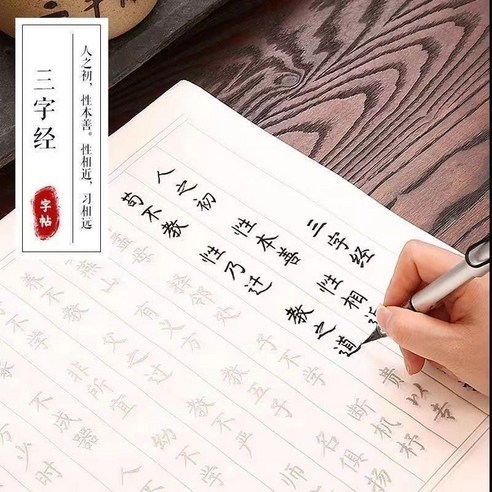 三字经
字帖
人之初，性本善。性相近，习相远
三字经
人之初 性本善 性相
苟不教 性乃迁 教之道 贵以专
孟母 择邻处 子不学 断机杼
燕山 有义方 教五子 名俱扬
养不教 教不严 师
不学 非所宜 幼不学
不成器 人不
少时